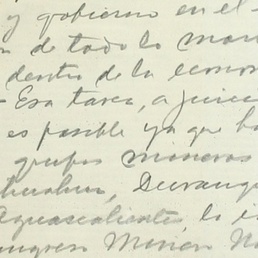 y gobierno en el
de todo lo
dentro de la econom
Esa tarea, a juici
es posible ya que ha
grupos mineros
huahua, Durang
Aguascalientes, la i
ongreso Minero Na